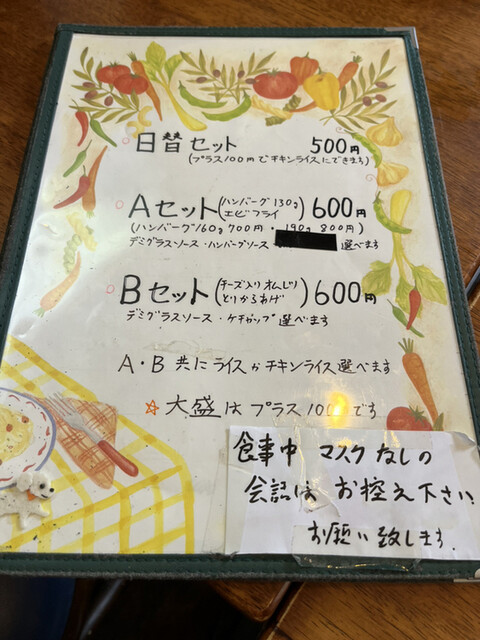 日替セット 500円
(プラス100mでチキンライスにできます)
Aセット(ハンバーグ130g エビフライ) 600円
(ハンバーグ160g 700円・190g 800円)
デミグラスソース・ハンバーグソース 選べます
Bセット(チーズ入りオムレツ とりからあげ) 600円
デミグラスソース・ケチャップ 選べます
A・B 共にライスかチキンライス選べます
☆大盛はプラス100です
食事中 マスクなしの
会話は お控え下さい
お願い致します.